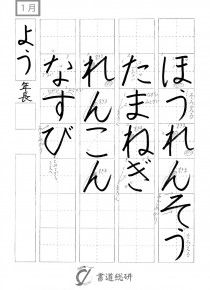 1月
ほうれんそう
たまねぎ
れんこん
なすび
よう年長
書道総研